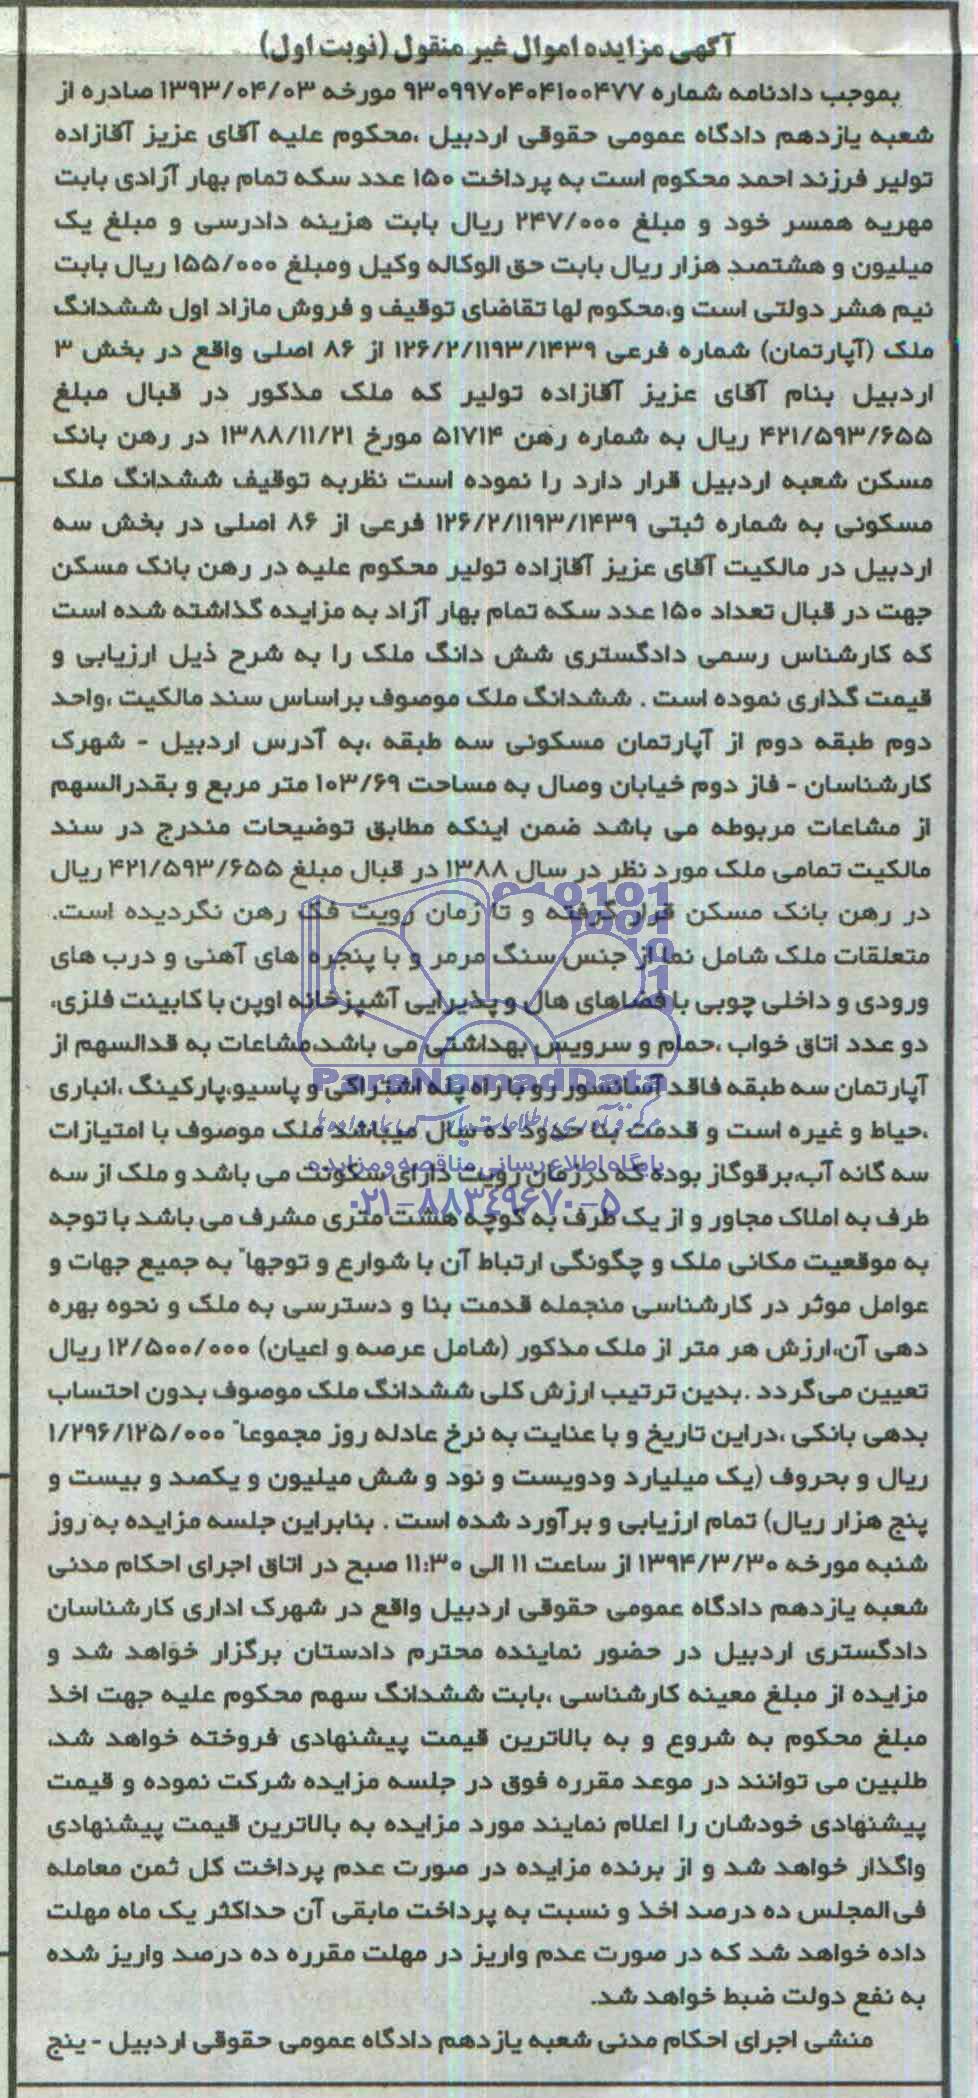 آگهی مزایده اموال غیر منقول (نوبت اول)
بموجب دادنامه شماره ۹۳۰۹۹۷۰۴۰۴۱۰۰۴۷۷ مورخه ۱۳۹۳/۰۴/۰۳ صادره از
شعبه یازدهم دادگاه عمومی حقوقی اردبیل ،محکوم علیه آقای عزیز آقازاده
تولیر فرزند احمد محکوم است به پرداخت ۱۵۰ عدد سکه تمام بهار آزادی بابت
مهریه همسر خود و مبلغ ۲۴۷/۰۰۰ ریال بابت هزینه دادرسی و مبلغ یک
میلیون و هشتصد هزار ریال بابت حق الوکاله وکیل ومبلغ ۱۵۵/۰۰۰ ریال بابت
نیم هشر دولتی است و،محکوم لها تقاضای توقیف و فروش مازاد اول ششدانگ
ملک (آپارتمان) شماره فرعی ۱۲۶/۲/۱۱۹۳/۱۴۳۹ از ۸۶ اصلی واقع در بخش ۳
اردبیل بنام آقای عزیز آقازاده تولیر که ملک مذکور در قبال مبلغ
۴۲۱/۵۹۳/۶۵۵ ریال به شماره رهن ۵۱۷۱۴ مورخ ۱۳۸۸/۱۱/۲۱ در رهن بانک
مسکن شعبه اردبیل قرار دارد را نموده است نظربه توقیف ششدانگ ملک
مسکونی به شماره ثبتی ۱۲۶/۲/۱۱۹۳/۱۴۳۹ فرعی از ۸۶ اصلی در بخش سه
اردبیل در مالکیت آقای عزیز آقازاده تولیر محکوم علیه در رهن بانک مسکن
جهت در قبال تعداد ۱۵۰ عدد سکه تمام بهار آزاد به مزایده گذاشته شده است
که کارشناس رسمی دادگستری شش دانگ ملک را به شرح ذیل ارزیابی و
قیمت گذاری نموده است . ششدانگ ملک موصوف براساس سند مالکیت ،واحد
دوم طبقه دوم از آپارتمان مسکونی سه طبقه ،به آدرس اردبیل - شهرک
کارشناسان - فاز دوم خیابان وصال به مساحت ۱۰۳/۶۹ متر مربع و بقدرالسهم
از مشاعات مربوطه می باشد ضمن اینکه مطابق توضیحات مندرج در سند
مالکیت تمامی ملک مورد نظر در سال ۱۳۸۸ در قبال مبلغ ۴۲۱/۵۹۳/۶۵۵ ریال
در رهن بانک مسکن قرار گرفته و تا زمان رویت فک رهن نگردیده است.
متعلقات ملک شامل نما از جنس سنگ مرمر و با پنجره های آهنی و درب های
ورودی و داخلی چوبی با فضاهای هال و پذیرایی آشپزخانه اوپن با کابینت فلزی،
دو عدد اتاق خواب ،حمام و سرویس بهداشتی می باشد،مشاعات به قدالسهم از
آپارتمان سه طبقه فاقد آسانسور رو با راه پله اشتراکی و پاسیو،پارکینگ ،انباری
،حیاط و غیره است و قدمت بنا حدود ده سال میباشد ملک موصوف با امتیازات
سه گانه آب،برقوگاز بوده که درزمان رویت دارای سکونت می باشد و ملک از سه
طرف به املاک مجاور و از یک طرف به کوچه هشت متری مشرف می باشد با توجه
به موقعیت مکانی ملک و چگونگی ارتباط آن با شوارع و توجها" به جمیع جهات و
عوامل موثر در کارشناسی منجمله قدمت بنا و دسترسی به ملک و نحوه بهره
دهی آن،ارزش هر متر از ملک مذکور (شامل عرصه و اعیان) ۱۲/۵۰۰/۰۰۰ ریال
تعیین می‌گردد .بدین ترتیب ارزش کلی ششدانگ ملک موصوف بدون احتساب
بدهی بانکی ،دراین تاریخ و با عنایت به نرخ عادله روز مجموعا" ۱/۲۹۶/۱۲۵/۰۰۰
ریال و بحروف (یک میلیارد ودویست و نود و شش میلیون و یکصد و بیست و
پنج هزار ریال) تمام ارزیابی و برآورد شده است . بنابراین جلسه مزایده به روز
شنبه مورخه ۱۳۹۴/۳/۳۰ از ساعت ۱۱ الی ۱۱:۳۰ صبح در اتاق اجرای احکام مدنی
شعبه یازدهم دادگاه عمومی حقوقی اردبیل واقع در شهرک اداری کارشناسان
دادگستری اردبیل در حضور نماینده محترم دادستان برگزار خواهد شد و
مزایده از مبلغ معینه کارشناسی ،بابت ششدانگ سهم محکوم علیه جهت اخذ
مبلغ محکوم به شروع و به بالاترین قیمت پیشنهادی فروخته خواهد شد،
طلبین می توانند در موعد مقرره فوق در جلسه مزایده شرکت نموده و قیمت
پیشنهادی خودشان را اعلام نمایند مورد مزایده به بالاترین قیمت پیشنهادی
واگذار خواهد شد و از برنده مزایده در صورت عدم پرداخت کل ثمن معامله
فی‌المجلس ده درصد اخذ و نسبت به پرداخت مابقی آن حداکثر یک ماه مهلت
داده خواهد شد که در صورت عدم واریز در مهلت مقرره ده درصد واریز شده
به نفع دولت ضبط خواهد شد.
منشی اجرای احکام مدنی شعبه یازدهم دادگاه عمومی حقوقی اردبیل - پنج
ParsNamadData
پایگاه اطلاع رسانی مناقصه و مزایده
۰۲۱-۸۸۳۴۹۶۷۰-۵